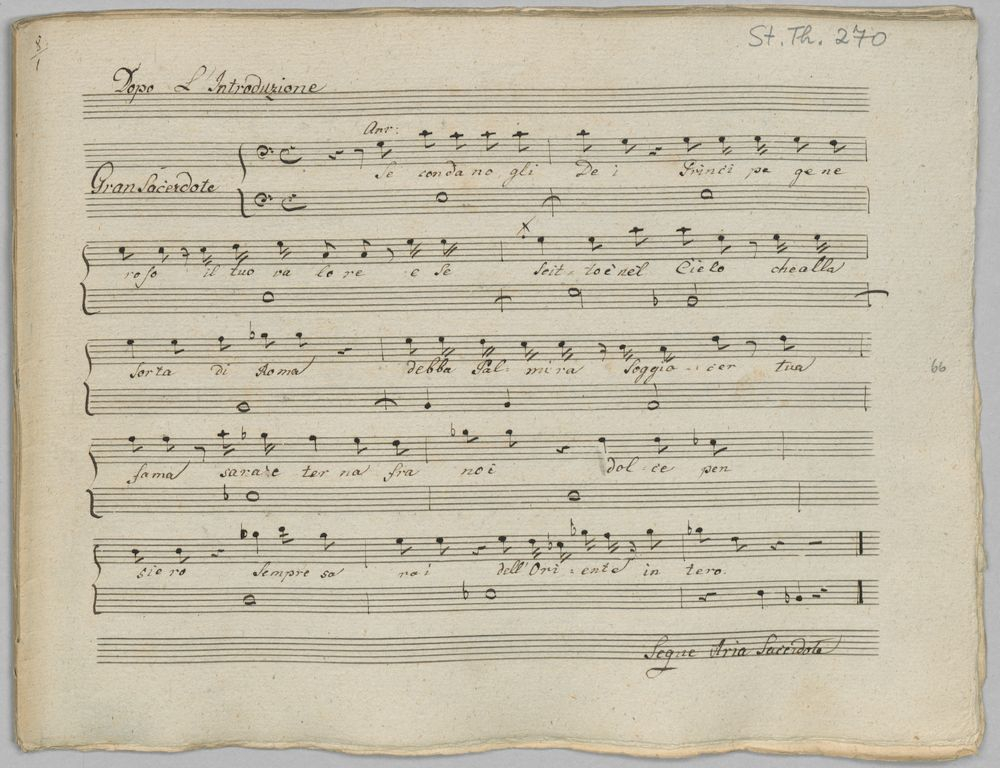 8
1
St. Th. 270
Dopo L'Introduzione
Gran Sacerdote
Se condano gli De i Princi pe gene
roso il tuo va lo re e se scit-to è nel Cielo che alla
66
sorta di Roma debba Pal-mira soggia-cer tua
fama sarà e ter na fra noi dol-ce pen
siero sempre sa rai dell'Ori-ente in tero.
Segue Aria Sacerdote